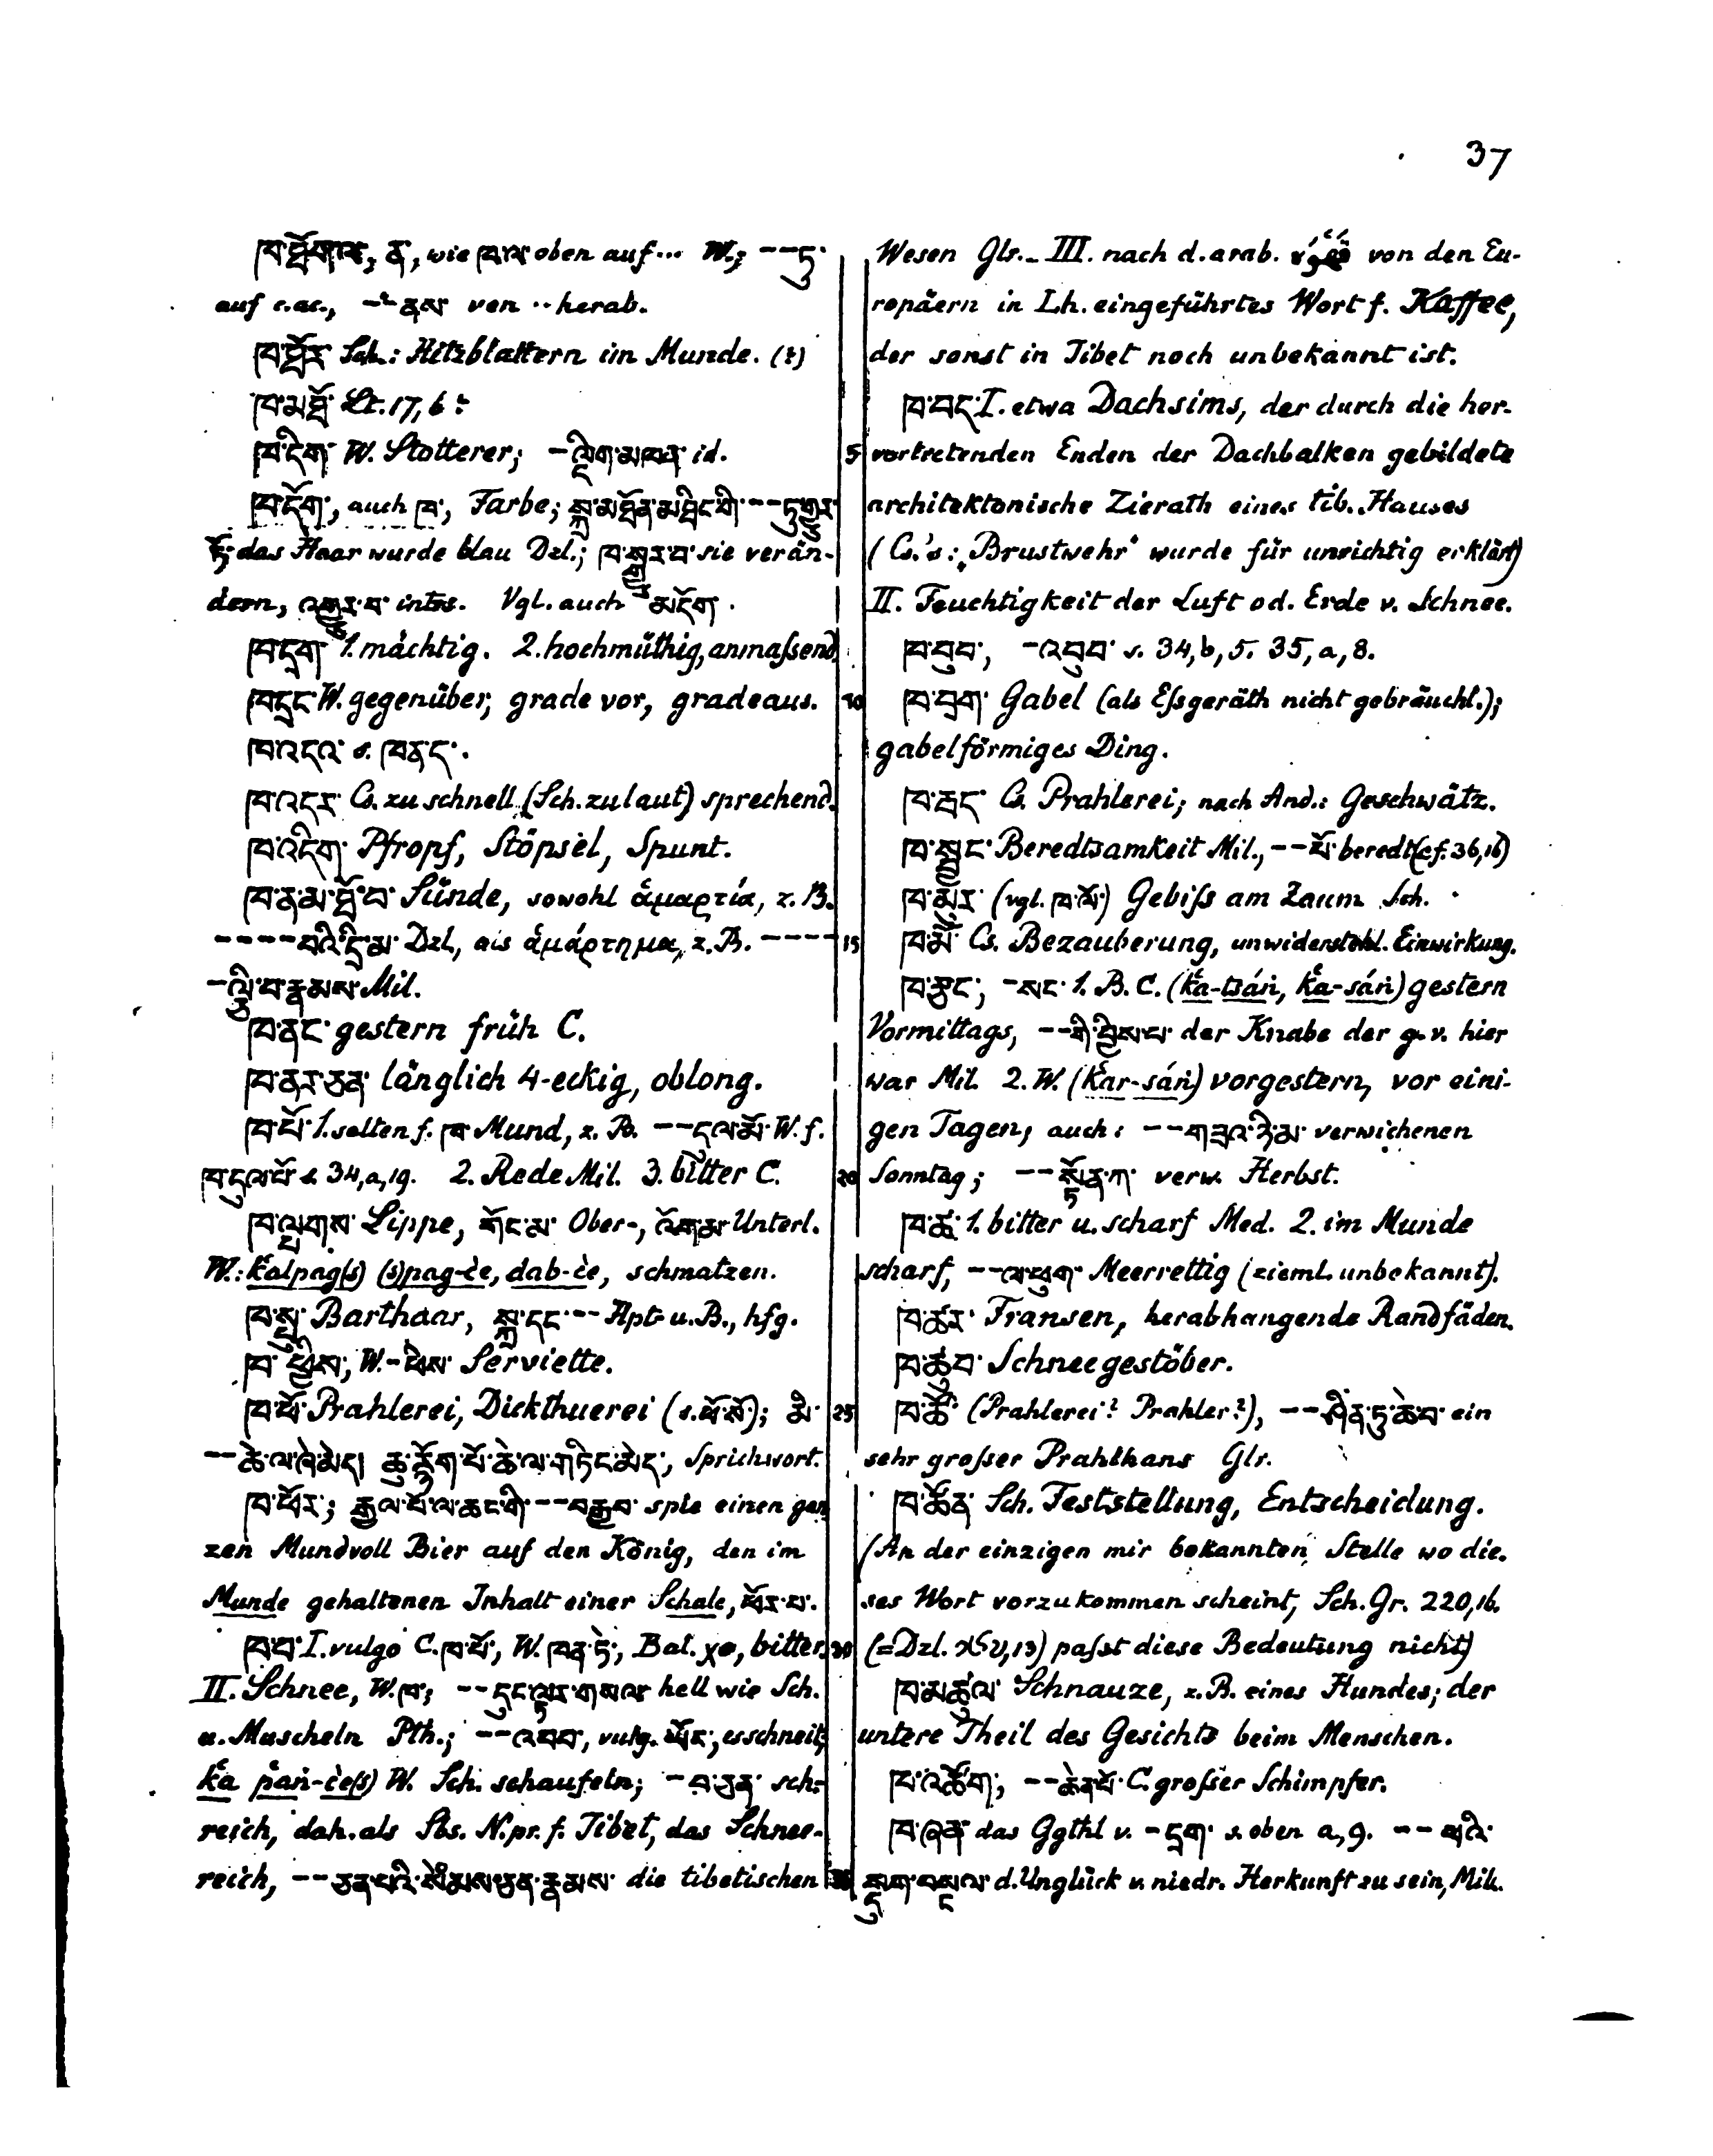 37
ཁ་ཐོག་ལ, ན, wie ཁ་ལ་ oben auf... W.; --ཏུ་
auf c.ac., --ནས་ von .. herab.
ཁ་ཐོར་ Sch.: Hitzblattern im Munde. (?)
ཁ་མཐོ་ Lt. 17, 6?
ཁ་དིག་ W. Stotterer; -ལྡིག་མཁན་ id.
ཁ་དོག་, auch ཁ་, Farbe; སྐྲ་མཐོན་མཐིང་གི་--ཏུ་གྱུར་
ཏོ; das Haar wurde blau Dzl.; ཁ་སྒྱུར་བ་ sie verän-
dern, འགྱུར་བ་ intrs. Vgl. auch མདོག་.
ཁ་དྲག་ 1. mächtig. 2. hochmüthig, anmaſsend.
ཁ་དྲང་ W. gegenüber; grade vor, gradeaus.
ཁ་འདའ་ s. ཁ་ནད་.
ཁ་འདར་ Cs. zu schnell (Sch. zu laut) sprechend.
ཁ་འདིག་ Pfropf, Stöpsel, Spunt.
ཁ་ན་མ་ཐོ་བ་ Sünde, sowohl ἁμαρτία, z. B.
----བའི་དྲི་མ་ Dzl, als ἁμάρτημα, z. B. ----
-ལྟུ་བ་རྣམས་ Mil.
ཁ་ནང་ gestern früh C.
ཁ་ནར་ཅན་ länglich 4-eckig, oblong.
ཁ་པོ་ 1. selten f. ཁ་ Mund, z. B. --དལ་མོ་ W. f.
ཁ་དུལ་པོ་ s. 34, a, 19. 2. Rede Mil. 3. bitter C.
ཁ་ལྤགས་ Lippe, གོང་མ་ Ober-, འོག་མ་ Unterl.
W.: k̔alpag(s) (s)pag-c̀e, dab-c̀e, schmatzen.
ཁ་སྤུ་ Barthaar, སྐྲ་དང་-- Hpt- u. B., hfg.
ཁ་ཕྱིས, W. -ཕིས་ Serviette.
ཁ་ཕོ་ Prahlerei, Dickthuerei (s. ཕོ་སོ་); མི་
--ཆེ་ལ་ཞེ་མེད། ཆུ་རྙོག་པོ་ཆེ་ལ་གཏིང་མེད་, Sprichwort.
ཁ་ཕོར་; རྒྱལ་པོ་ལ་ཆང་གི་--བརྒྱབ་ spie einen gan
zen Mundvoll Bier auf den König, den im
Munde gehaltenen Inhalt einer Schale, ཕོར་པ་.
ཁ་བ་ I. vulgo C. ཁ་པོ་, W. ཁན་ཏེ་, Bal. χo, bitter.
II. Schnee, W. ཁ་; --དུང་ལྟར་གསལ་ hell wie Sch.
u. Muscheln Pth.; --འབབ་, vulg. ཡོང་, es schneit;
k̔a p̔aṅ-c̀e(s) W. Sch. schaufeln; -བ་ཅན་ sch-
reich, dah. als Sbs. N. pr. f. Tibet, das Schnee-
reich, --ཅན་པའི་སེམས་ཅན་རྣམས་ die tibetischen
Wesen Glr._ III. nach d. arab. قهوة von den Eu-
ropäern in Lh. eingeführtes Wort f. Kaffee,
der sonst in Tibet noch unbekannt ist.
ཁ་བད་ I. etwa Dachsims, der durch die her-
vortretenden Enden der Dachbalken gebildete
architektonische Zierath eines tib. Hauses
(Cs.'s: „Brustwehr" wurde für unrichtig erklärt)
II. Feuchtigkeit der Luft od. Erde v. Schnee.
ཁ་བུབ་, -འབུབ་ s. 34, b, 5. 35, a, 8.
ཁ་བྲག་ Gabel (als Eſsgeräth nicht gebräuchl.);
gabelförmiges Ding.
ཁ་རྦད་ Cs. Prahlerei; nach And.: Geschwätz.
ཁ་སྦྱང་ Beredtsamkeit Mil., --པོ་ beredt (cf. 36, 16)
ཁ་མུར་ (vgl. ཁ་ལོ་) Gebiſs am Zaum Sch.
ཁ་མོ་ Cs. Bezauberung, unwiderstehl. Einwirkung.
ཁ་རྩང་, -སང་ 1. B. C. (k̔a-tsáṅ, k̔a-sáṅ) gestern
Vormittags, --གི་བྱིས་པ་ der Knabe der g. v. hier
war Mil. 2. W. (k̔ar-sáṅ) vorgestern, vor eini-
gen Tagen; auch: --གཟའ་ཉི་མ་ verwichenen
Sonntag; --སྟོན་ཀ་ verw. Herbst.
ཁ་ཚ་ 1. bitter u. scharf Med. 2. im Munde
scharf, --ལ་ཕུག་ Meerrettig (zieml. unbekannt).
ཁ་ཚར་ Fransen, herabhangende Randfäden.
ཁ་ཚུབ་ Schneegestöber.
ཁ་ཚོ་ (Prahlerei? Prahler?), --ཤིན་ཏུ་ཆེ་བ་ ein
sehr groſser Prahlhans Glr.
ཁ་ཚོན་ Sch. Feststellung, Entscheidung.
(An der einzigen mir bekannten Stelle wo die-
ses Wort vorzukommen scheint, Sch. Gr. 220, 16.
(=Dzl. 13) paſst diese Bedeutung nicht)
ཁ་མཚུལ་ Schnauze, z. B. eines Hundes; der
untere Theil des Gesichts beim Menschen.
ཁ་འཚོག་; --ཆེན་པོ་ C. groſser Schimpfer.
ཁ་ཞན་ das Ggthl v. -དྲག་ s. oben a, 9. --པའི་
སྡུག་བསྔལ་ d. Unglück v. niedr. Herkunft zu sein, Mil.